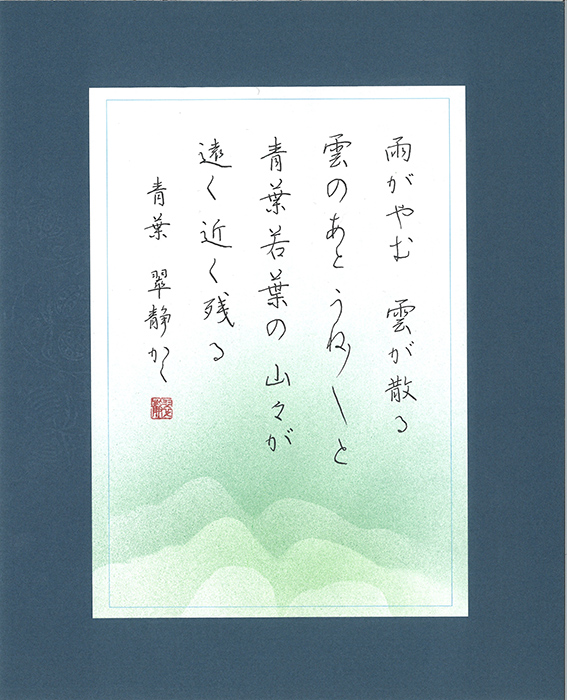 雨がやむ　雲が散る
雲のあとうね〳〵と
青葉若葉の山々が
遠く近く残る
青葉　翠静かく